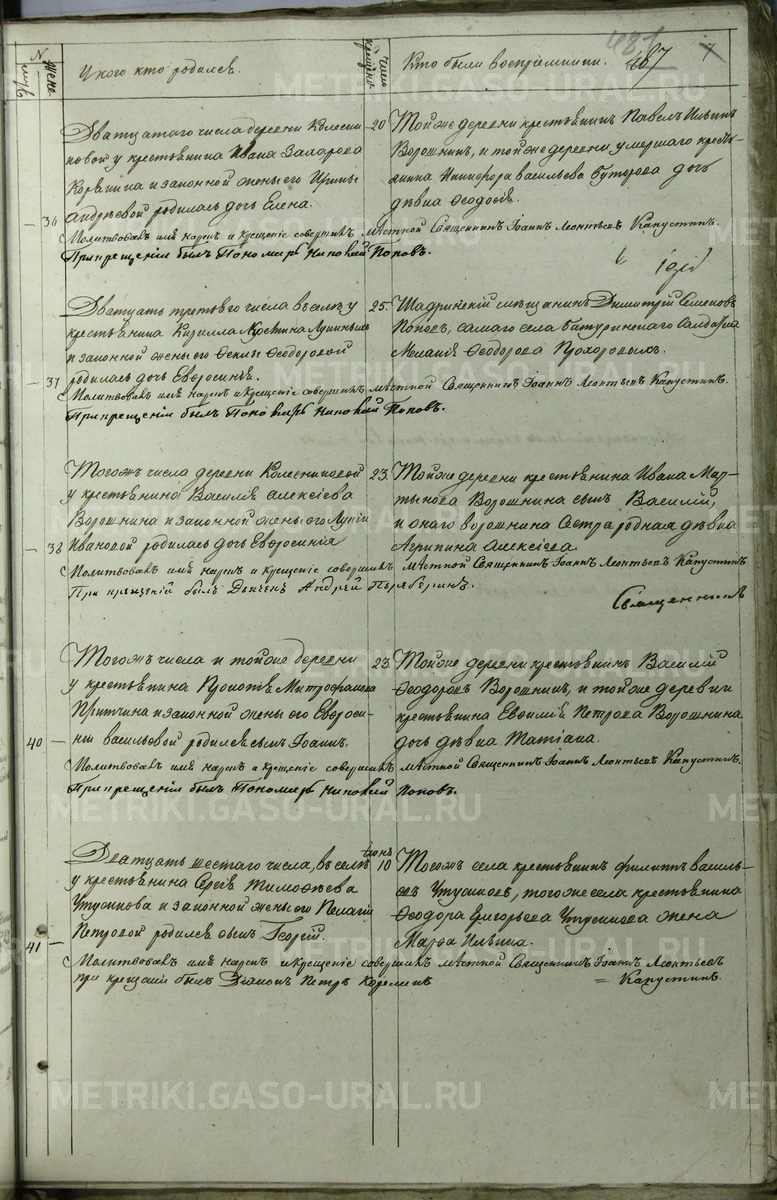 481
187
7
№
муж
Жене
У кого кто родился.
число крещено
Кто были воспріемники.
Дватцатаго числа деревни Колесни
ковой у крестьянина Ивана Захарова
законной жены его Ирины
Андреевой родилась дочь Елена.
36
20
Той же деревни крестьянинъ Павелъ Ильинъ
Ворошнинъ, и той же деревни умершаго кресть-
янина Никифора Васильева Буторова дочь
девка Феодосья.
Молитвовалъ имя нарекъ и крещеніе совершилъ местной Священникъ Іоаннъ Леонтьевъ Капустинъ.
При крещеніи былъ Пономарь Поповъ.
Дватцать третьего числа въ селе у
крестьянина Кирилла
и законной жены его Феклы Феодоровой
родилась дочь Евфросинья.
37
25.
Шадринскій мещанинъ Димитрій Семеновъ
Поповъ, самаго села Батуринскаго Солдатка
Меланія Феодорова Прохоровыхъ.
Молитвовалъ имя нарекъ и крещеніе совершилъ местной Священникъ Іоаннъ Леонтьевъ Капустинъ.
При крещеніи былъ Пономарь Поповъ.
Тогожъ числа деревни Колесниковой
у крестьянина Василія Алексіева
Ворошнина и законной жены его Лукіи
Ивановой родилась дочь Евфросинія
38
23.
Той же деревни крестьянина Ивана Мар-
тынова Ворошнина сынъ Василій,
и онаго Ворошнина сестра родная девка
Агрипина Алексіева
Молитвовалъ имя нарекъ и крещеніе совершилъ местной Священникъ Іоаннъ Леонтьевъ Капустинъ
При крещеній былъ Дьячекъ Андрей
Священникъ
Тогожъ числа и той же деревни
у крестьянина Митрофанова
Притчина и законной жены его Евфроси-
ніи Васильевой родился сынъ Іоаннъ.
40
23
Той же деревни крестьянинъ Василій
Феодоровъ Ворошнинъ, и той же деревни
крестьянина Евфимія Петрова Ворошнина
дочь девка Татіана.
Молитвовалъ имя нарекъ и крещеніе совершилъ местной Священникъ Іоаннъ Леонтьевъ Капустинъ.
При крещеніи былъ Пономарь Поповъ.
Дватцать шестаго числа, въ селе
у крестьянина Сергія Тимофеева
Утусикова и законной жены его Пелагіи
Петровой родился сынъ Георгій.
41
10
Тогожъ села крестьянинъ Филиппъ Василь-
евъ Утусиковъ, того же села крестьянина
Феодора Григорьева Утусикова жена
Марфа Ильина.
Молитвовалъ имя нарекъ и крещеніе совершилъ местной Священникъ Іоаннъ Леонтьевъ
Капустинъ.
при крещеніи былъ Діаконъ Петръ Корелинъ
METRIKI.GASO-URAL.RU